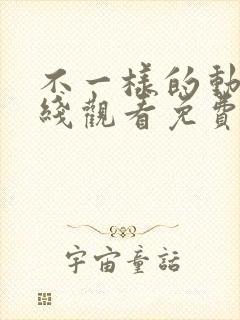 不一樣的動
綫觀看免費
宇宙童話